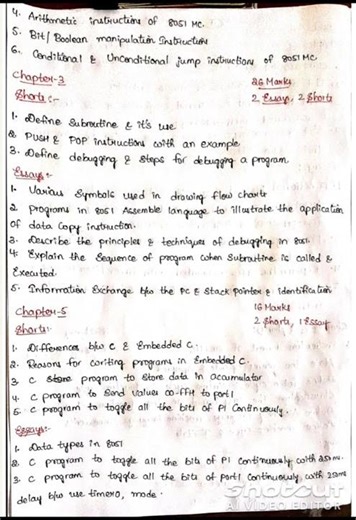 4. Arithmetic instruction of 8051 MC.
5. Bit/Boolean manipulation Instruction
6. Conditional & Unconditional jump instructions of 8051 MC.
Chapter-3 26 Marks
Shorts :- 2 Essay, 2 Shorts
1. Define Subroutine & it's use
2. PUSH & POP instructions with an example
3. Define debugging & steps for debugging a program.
Essay:-
1. Various Symbols used in drawing flow charts
2. programs in 8051 Assemble language to illustrate the application
of data Copy instruction.
3. Describe the principles & techniques of debugging in 8051.
4. Explain the Sequence of program when Subroutine is called &
Executed.
5. Information Exchange b/w the PC & Stack pointer & identification
Chapter-5 16 Marks
Shorts: 2 Shorts, 1 Essay
1. Differences b/w C & Embedded C.
2. Reasons for writing programs in Embedded C.
3. C store program to Store data in accumulator
4. C program to Send values 00-FFH to port1
5. C program to toggle all the bits of P1 Continuously.
Essays:-
1. Data types in 8051
2. C program to toggle all the bits of P1 Continuously with 250ms.
3. C program to toggle all the bits of port1 Continuously, with 250ms
delay b/w use timer0, mode.
Shotcut
AI VIDEO EDITOR